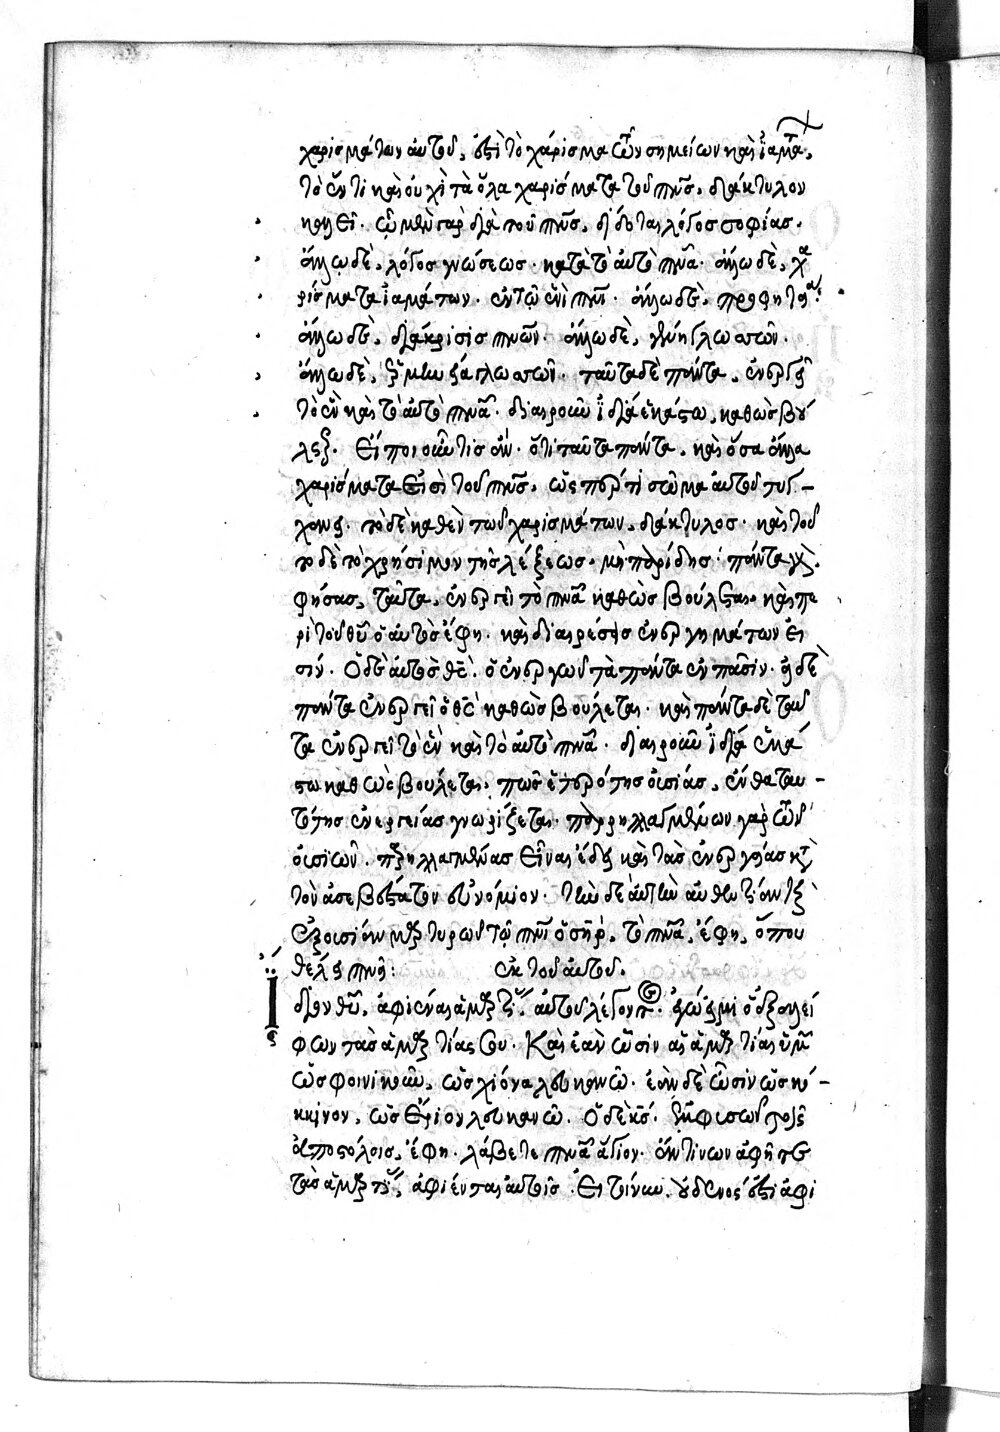 χαρισμάτων αὐτοῦ, ἐστὶ τὸ χάρισμα τῶν σημείων καὶ ἰαμά,
τὸ ἕν τι καὶ οὐχὶ τὰ ὅλα χαρίσματα τοῦ πνς, δάκτυλον
καλεῖ. ᾧ μὲν γὰρ διὰ τοῦ πνς, δίδοται λόγος σοφίας.
ἄλλῳ δὲ, λόγος γνώσεως. κατὰ τὸ αὐτὸ πνα. ἄλλῳ δὲ, χα
ρίσματα ἰαμάτων. ἐν τῷ ἑνὶ πνι. ἄλλῳ δὲ, προφητεία.
ἄλλῳ δὲ, διάκρισις πνων. ἄλλῳ δὲ, γένη γλωσσῶν.
ἄλλῳ δὲ, ἑρμηνεία γλωσσῶν. ταῦτα δὲ πάντα, ἐνεργεῖ
τὸ ἓν καὶ τὸ αὐτὸ πνα. διαιροῦν ἰδίᾳ ἑκάστῳ, καθὼς βού
λεται. Εἴποι οὖν τις ἂν. ὅτι ταῦτα πάντα, καὶ ὅσα ἄλλα
χαρίσματα εἰσὶ τοῦ πνς, ὥσπερ τι σῶμα αὐτοῦ τυγ
χάνει. τὸ δὲ καθὲν τῶν χαρισμάτων, δάκτυλος. καὶ τοῦ
το δὲ τὸ χρήσιμον τῆς λέξεως. μὴ παρίδῃς. πάντα γὰρ
φήσας, ταῦτα, ἐνεργεῖ τὸ πνα καθὼς βούλεται. καὶ πε
ρὶ τοῦ θυ ὁ αὐτὸς ἔφη. καὶ διαιρέσεις ἐνεργημάτων εἰ
σίν. Ὁ δὲ αὐτὸς θς. ὁ ἐνεργῶν τὰ πάντα ἐν πᾶσιν. εἰ δὲ
πάντα ἐνεργεῖ ὁ θς καθὼς βούλεται. καὶ πάντα δὲ ταῦ
τα ἐνεργεῖ τὸ ἓν καὶ τὸ αὐτὸ πνα. διαιροῦν ἰδίᾳ ἑκά
στω καθὼς βούλεται, πῶς ἑτερότης οὐσίας, ἔνθα ταυ
τότης ἐνεργείας γνωρίζεται. παρηλλαγμένων γὰρ τῶν
οὐσιῶν. παρηλλαγμένας εἶναι ἔδει καὶ τὰς ἐνεργείας κατὰ
τὸν ἀσεβέστατον εὐνόμιον. τὴν δὲ αὐτὴν αὐθεντίαν καὶ
ἐξουσίαν μαρτυρῶν τῷ πνι ὁ σηρ, τὸ πνα, ἔφη, ὅπου
θέλει πνεῖ: ἐκ τοῦ αὐτοῦ.
ἴδιον θυ, ἀφιέναι ἁμαρτίας αὐτοῦ λέγοντος. ἐγώ εἰμι ὁ ἐξαλεί
φων τὰς ἁμαρτίας σου. Καὶ ἐὰν ὦσιν αἱ ἁμαρτίαι ὑμῶν
ὡς φοινικοῦν, ὡς χιόνα λευκανῶ. ἐὰν δὲ ὦσιν ὡς κό
κκινον, ὡς ἔριον λευκανῶ. Ὁ δὲ κς. ἐμφυσῶν τοῖς
ἀποστόλοις, ἔφη. λάβετε πνα ἅγιον. ἄν τινων ἀφῆτε
τὰς ἁμαρτίας, ἀφίενται αὐτοῖς. Εἰ τοίνυν οὐδενός ἐστι ἀφι